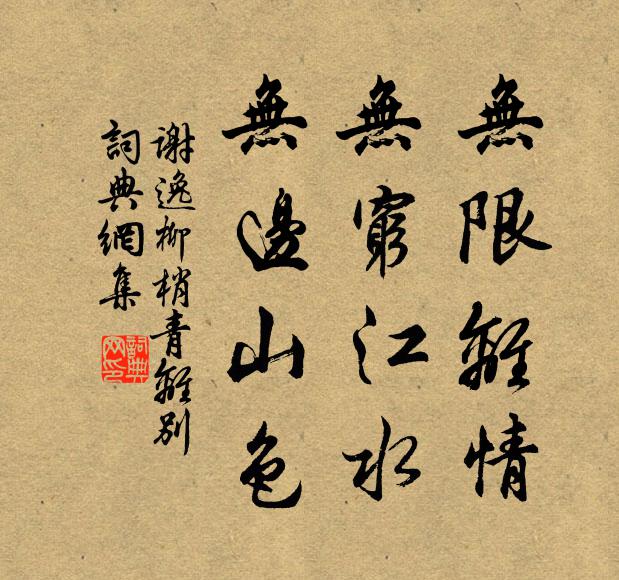 無限離情
無窮江水
無邊山色
謝逸柳梢青離別
詞典網集
詞典
网印